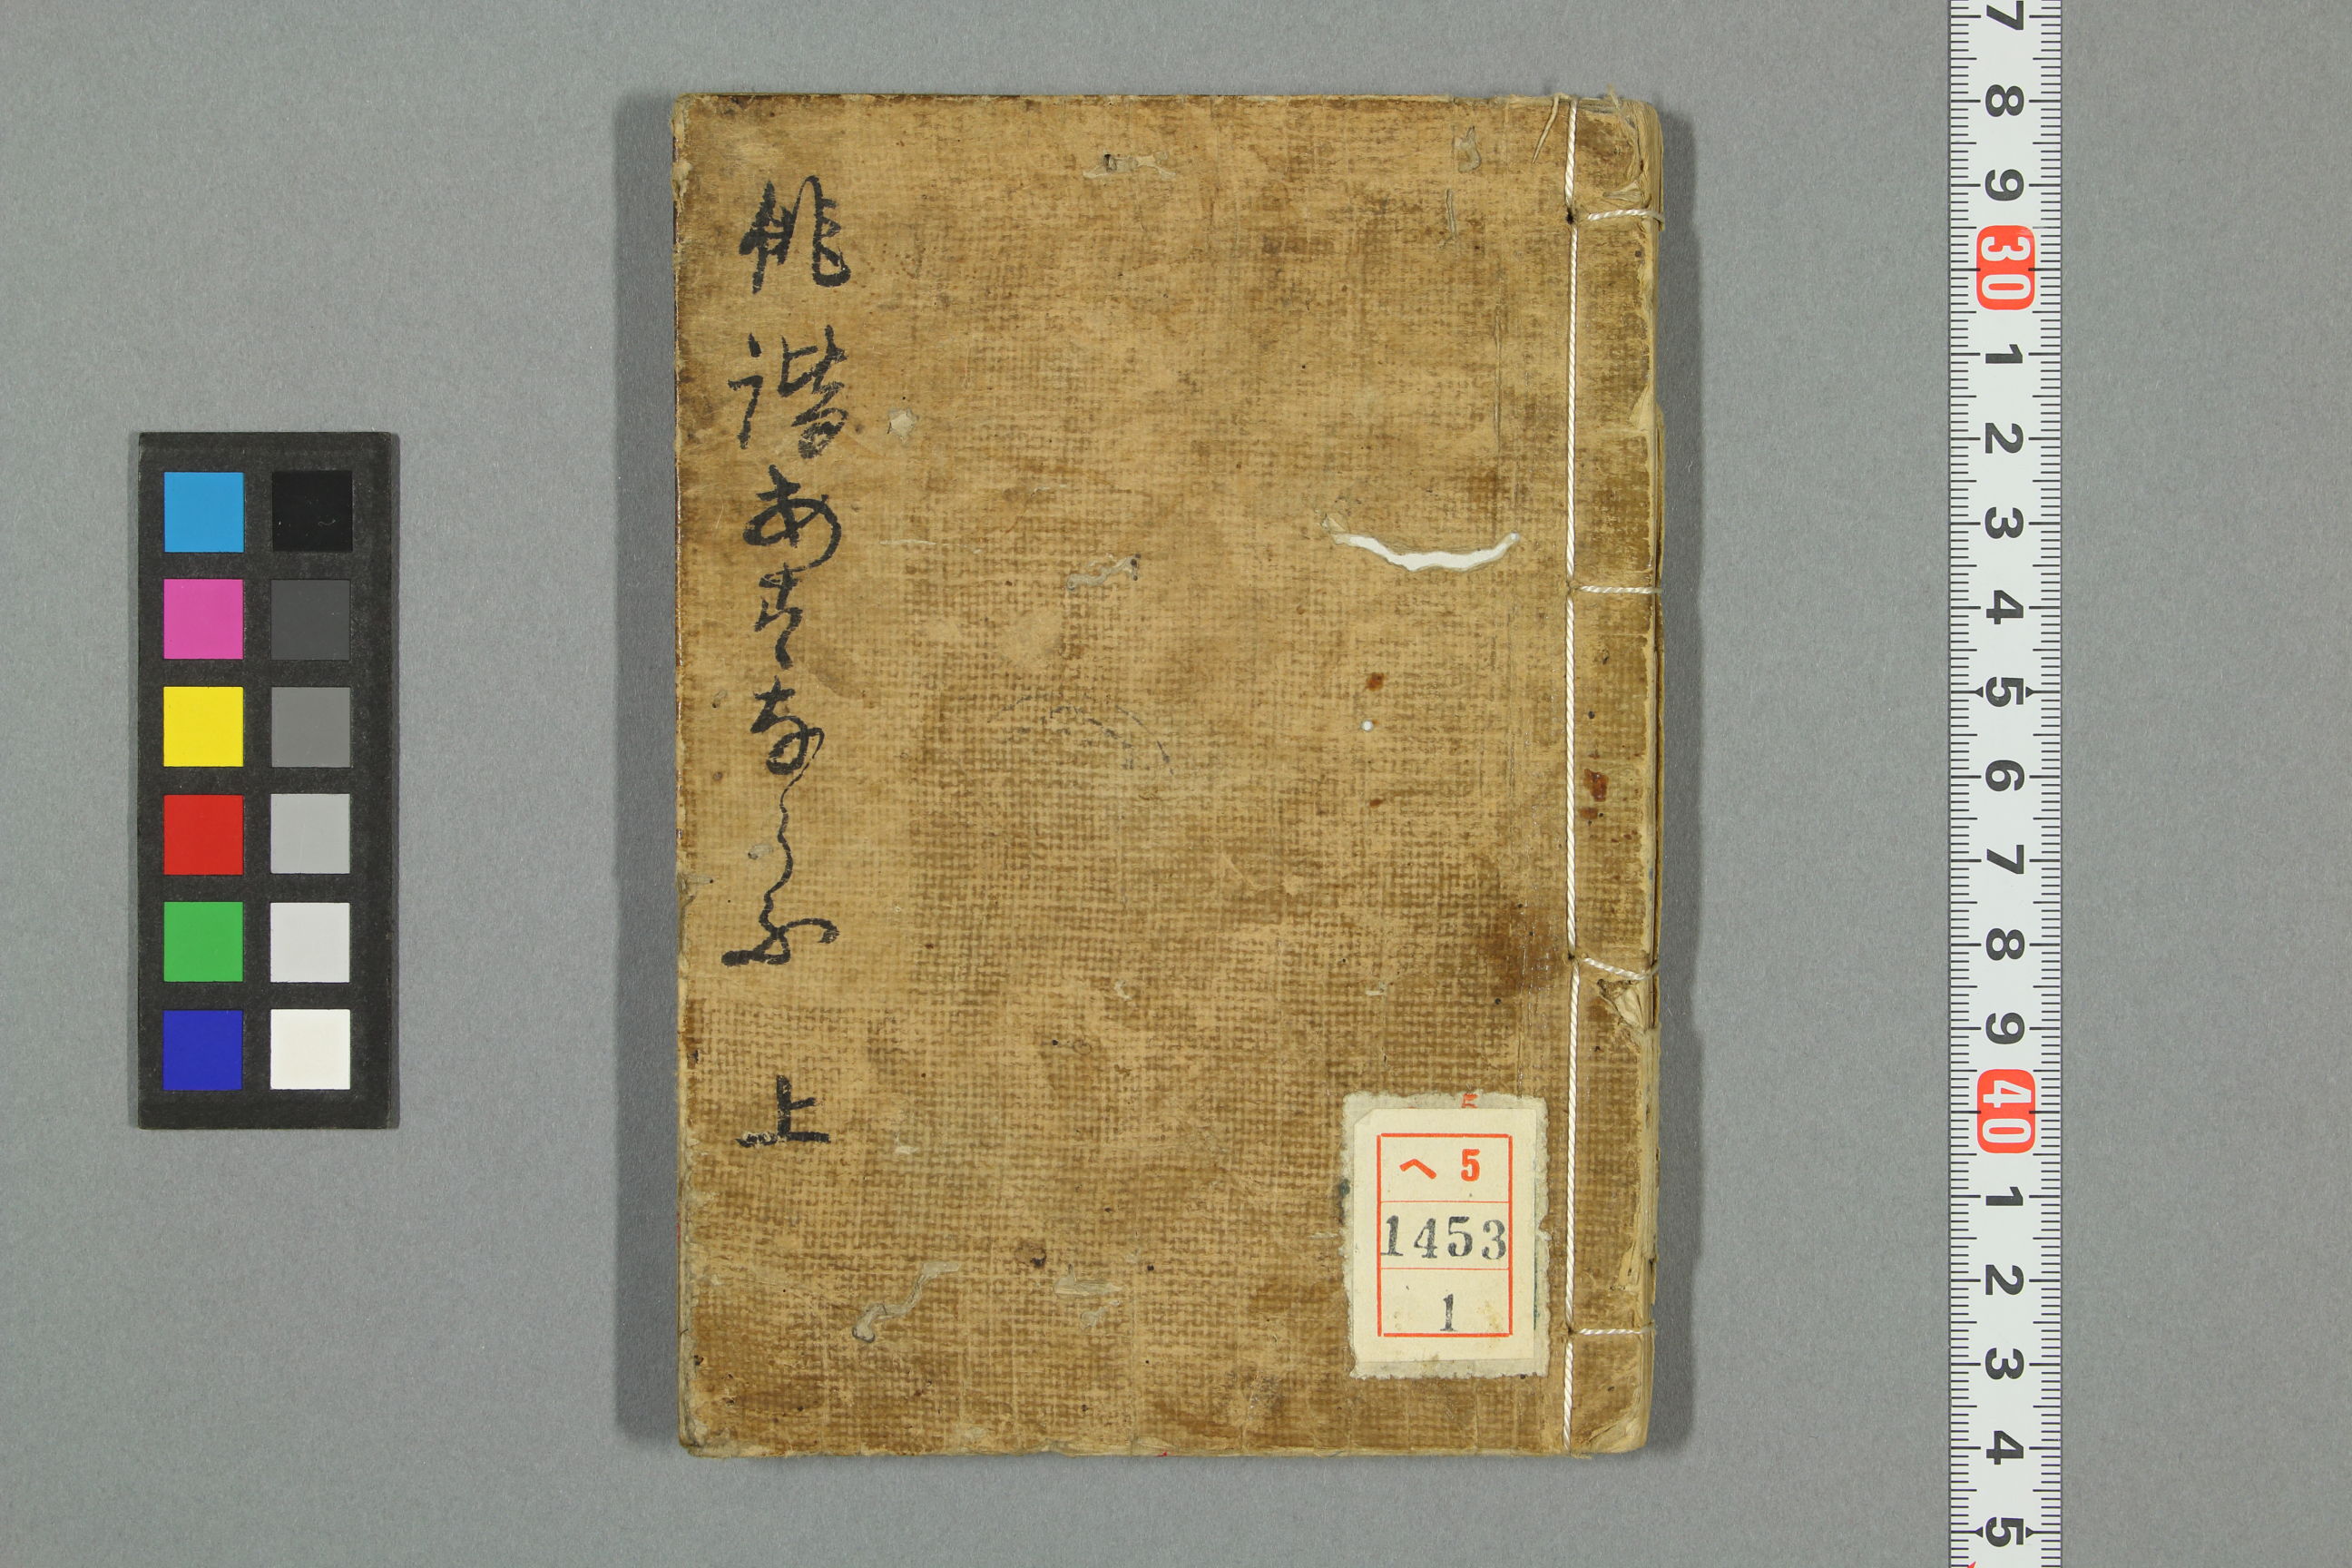 俳諧あすならふ 上
ヘ 5
1453
1
7 8 9 30 1 2 3 4 5 6 7 8 9 40 1 2 3 4 5